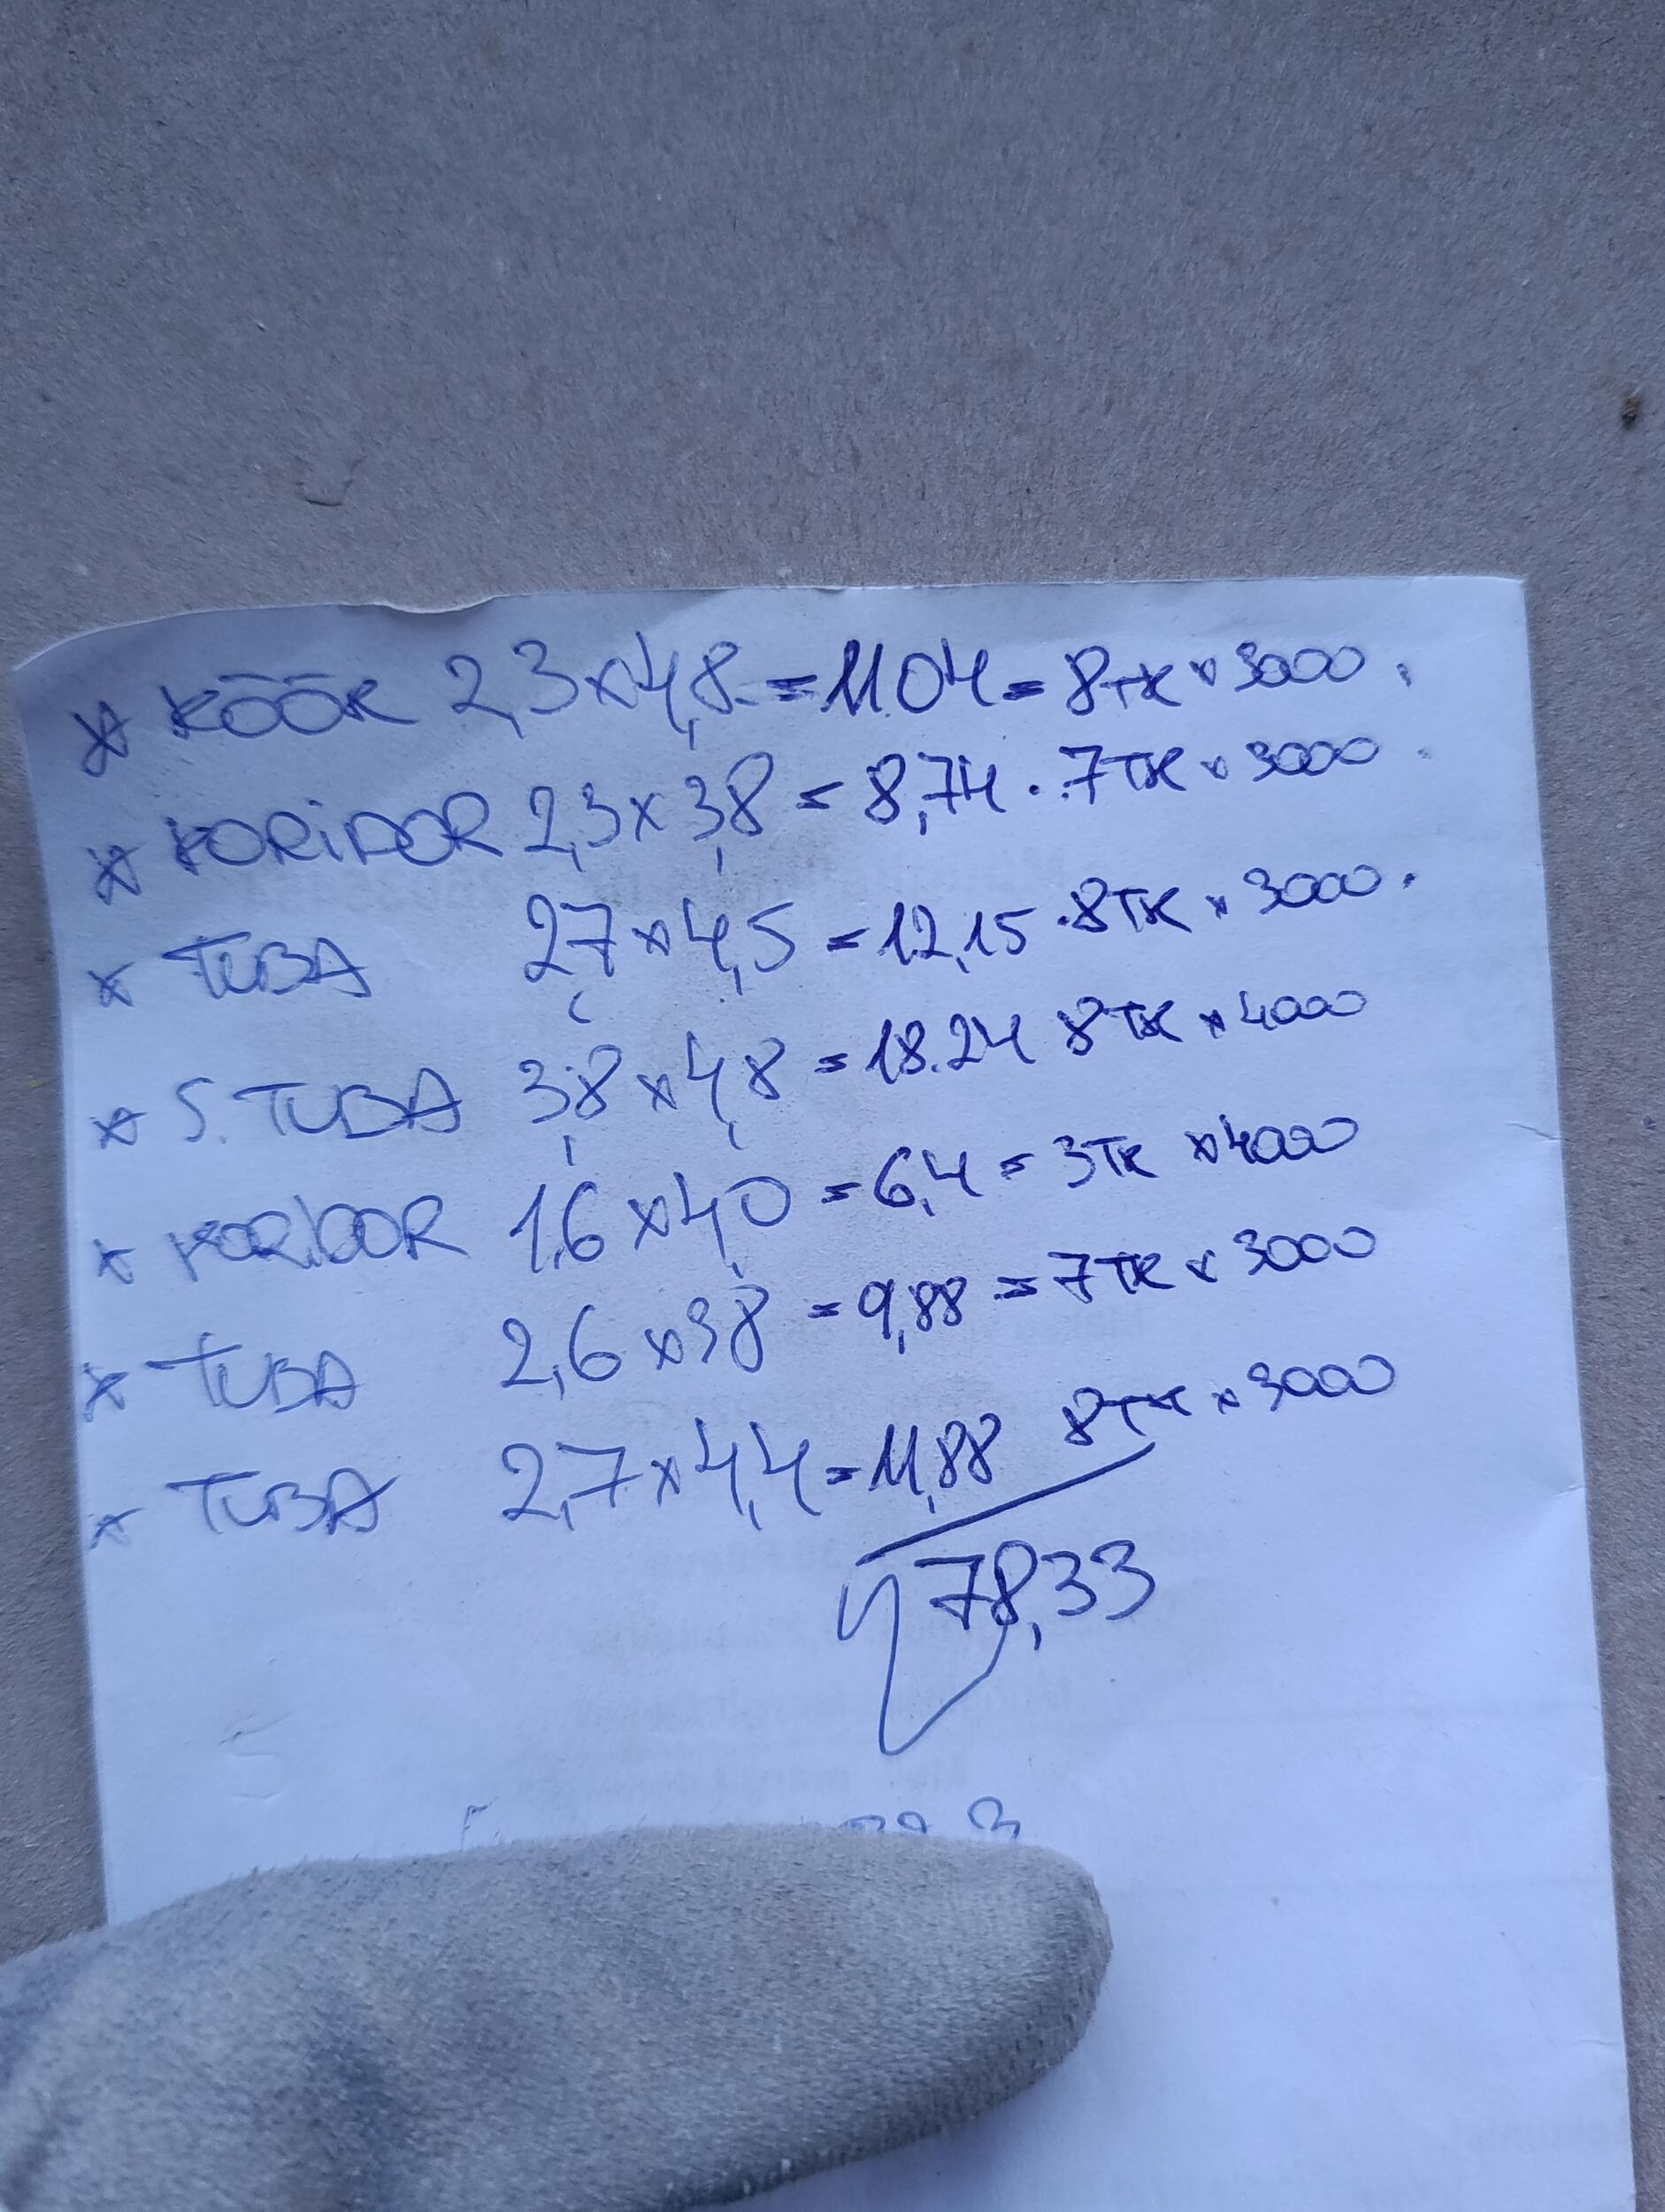 * KÖÖK 2,3x4,8 = 11.04 = 8TK x 3000.
* KORIDOR 2,3x3,8 = 8,74. 7TK x 3000.
* TUBA 2,7x4,5 = 12,15. 8TK x 3000.
* S. TUBA 3,8x4,8 = 18.24 8TK x 4000
* KORIDOR 1,6x4,0 = 6,4 = 3TK x 4000
* TUBA 2,6x3,8 = 9,88 = 7TK x 3000
* TUBA 2,7x4,4 = 11,88 8TK x 3000
78,33